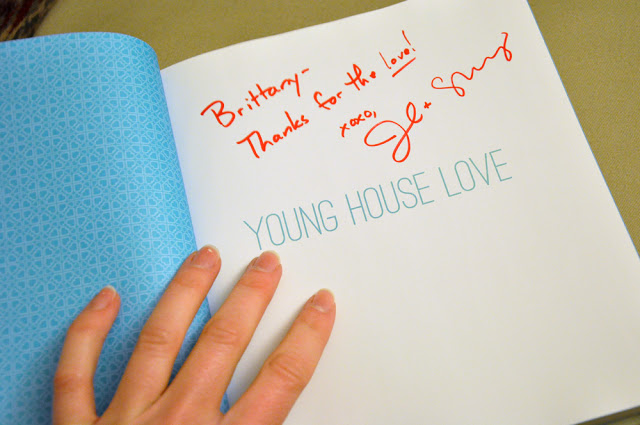 Brittany-
Thanks for the love!
xoxo,
YOUNG HOUSE LOVE